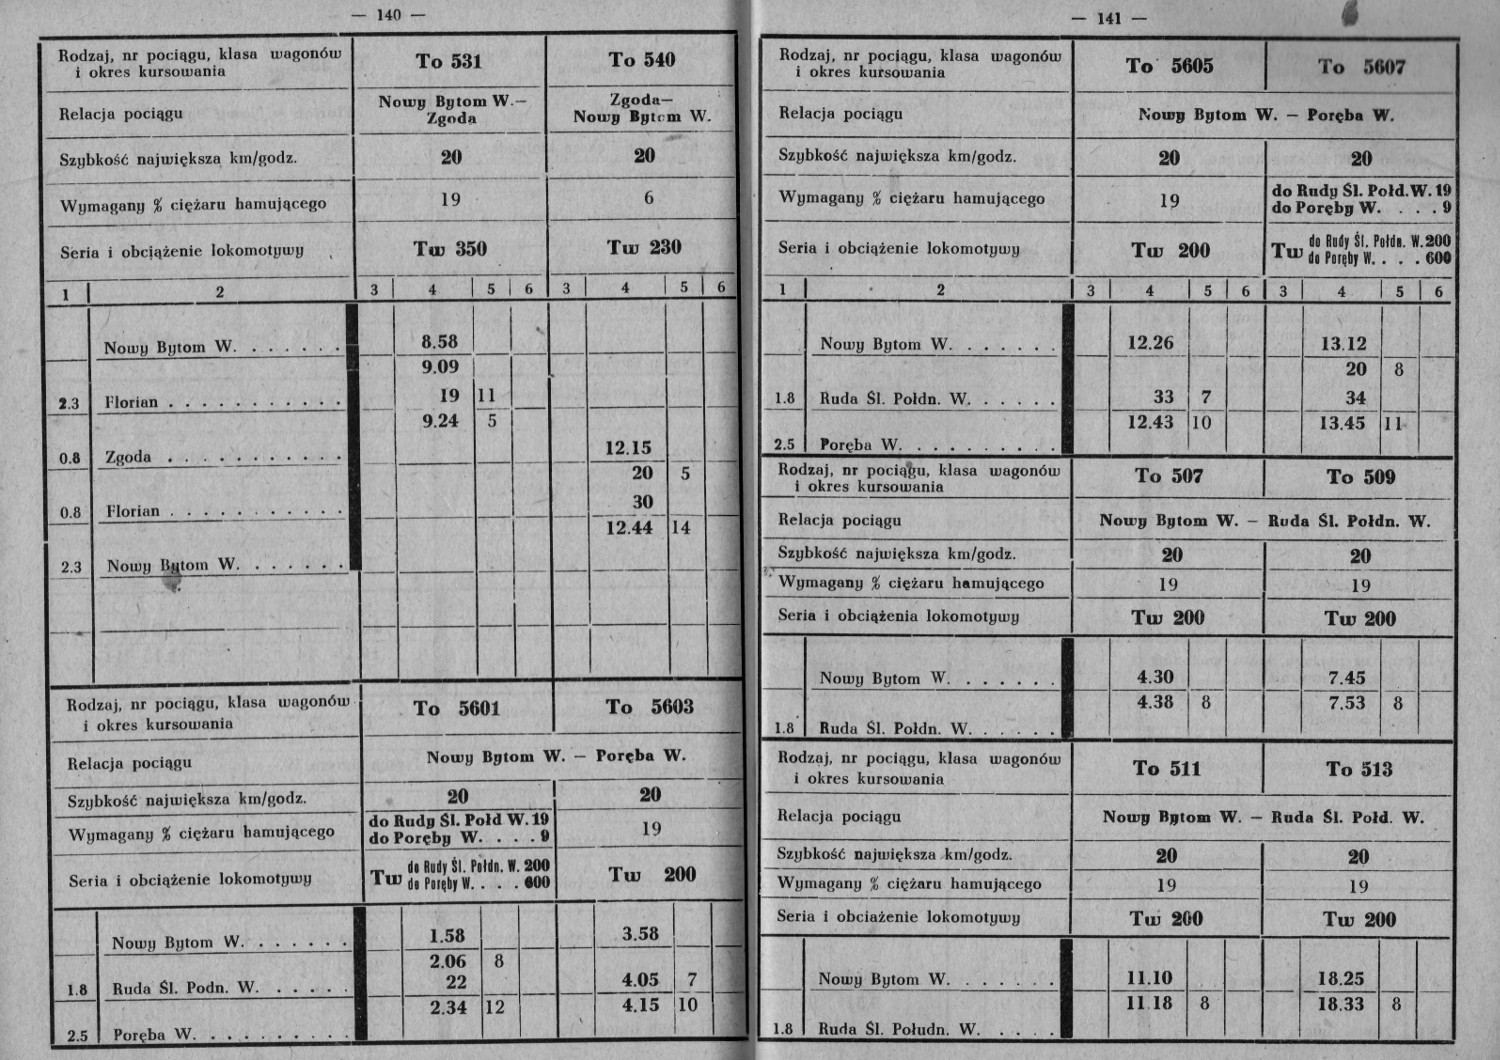 — 140 —
Rodzaj, nr pociągu, klasa wagonów
i okres kursowania
To 531
To 540
Relacja pociągu
Nowy Bytom W.—
Zgoda
Zgoda—
Nowy Bytom W.
Szybkość największa km/godz.
20
20
Wymagany % ciężaru hamującego
19
6
Seria i obciążenie lokomotywy
Tw 350
Tw 230
1 2 3 4 5 6 3 4 5 6
Nowy Bytom W. . . . . . . 8.58
9.09
2.3 Florian . . . . . . . . . . . 19 11
9.24 5
0.8 Zgoda . . . . . . . . . . . 12.15
20 5
0.8 Florian . . . . . . . . . . . 30
12.44 14
2.3 Nowy Bytom W. . . . . . .
Rodzaj, nr pociągu, klasa wagonów
i okres kursowania
To 5601
To 5603
Relacja pociągu
Nowy Bytom W. — Poręba W.
Szybkość największa km/godz.
20
20
Wymagany % ciężaru hamującego
do Rudy Śl. Połd W. 19
do Poręby W. . . . . 9
19
Seria i obciążenie lokomotywy
Tw do Rudy Śl. Połdn. W. 200
do Poręby W. . . . . 600
Tw 200
Nowy Bytom W. . . . . . . 1.58 3.58
2.06 8
1.8 Ruda Śl. Podn. W. . . . . . 22 4.05 7
2.34 12 4.15 10
2.5 Poręba W. . . . . . . . . .
— 141 —
Rodzaj, nr pociągu, klasa wagonów
i okres kursowania
To 5605
To 5607
Relacja pociągu
Nowy Bytom W. — Poręba W.
Szybkość największa km/godz.
20
20
Wymagany % ciężaru hamującego
19
do Rudy Śl. Połd. W. 19
do Poręby W. . . . . 9
Seria i obciążenie lokomotywy
Tw 200
Tw do Rudy Śl. Połdn. W. 200
do Poręby W. . . . . 600
1 2 3 4 5 6 3 4 5 6
Nowy Bytom W. . . . . . . 12.26 13.12
20 8
1.8 Ruda Śl. Połdn. W. . . . . . 33 7 34
12.43 10 13.45 11
2.5 Poręba W. . . . . . . . . .
Rodzaj, nr pociągu, klasa wagonów
i okres kursowania
To 507
To 509
Relacja pociągu
Nowy Bytom W. — Ruda Śl. Połdn. W.
Szybkość największa km/godz.
20
20
Wymagany % ciężaru hamującego
19
19
Seria i obciążenia lokomotywy
Tw 200
Tw 200
Nowy Bytom W. . . . . . . 4.30 7.45
4.38 8 7.53 8
1.8 Ruda Śl. Połdn. W. . . . . .
Rodzaj, nr pociągu, klasa wagonów
i okres kursowania
To 511
To 513
Relacja pociągu
Nowy Bytom W. — Ruda Śl. Połd. W.
Szybkość największa km/godz.
20
20
Wymagany % ciężaru hamującego
19
19
Seria i obciażenie lokomotywy
Tw 200
Tw 200
Nowy Bytom W. . . . . . . 11.10 18.25
11.18 8 18.33 8
1.8 Ruda Śl. Południ. W. . . . .